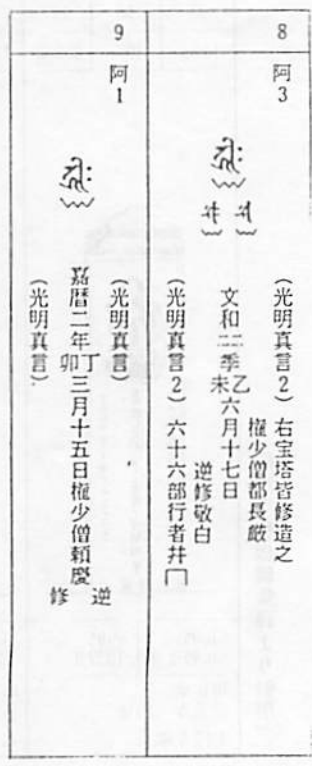 8
阿3
(光明真言2)右宝塔皆修造之
権少僧都長厳
文和二二季乙未六月十七日
逆修敬白
(光明真言2)六十六部行者井冂
9
阿1
(光明真言)
嘉暦二年丁卯三月十五日権少僧頼慶
逆修
(光明真言)